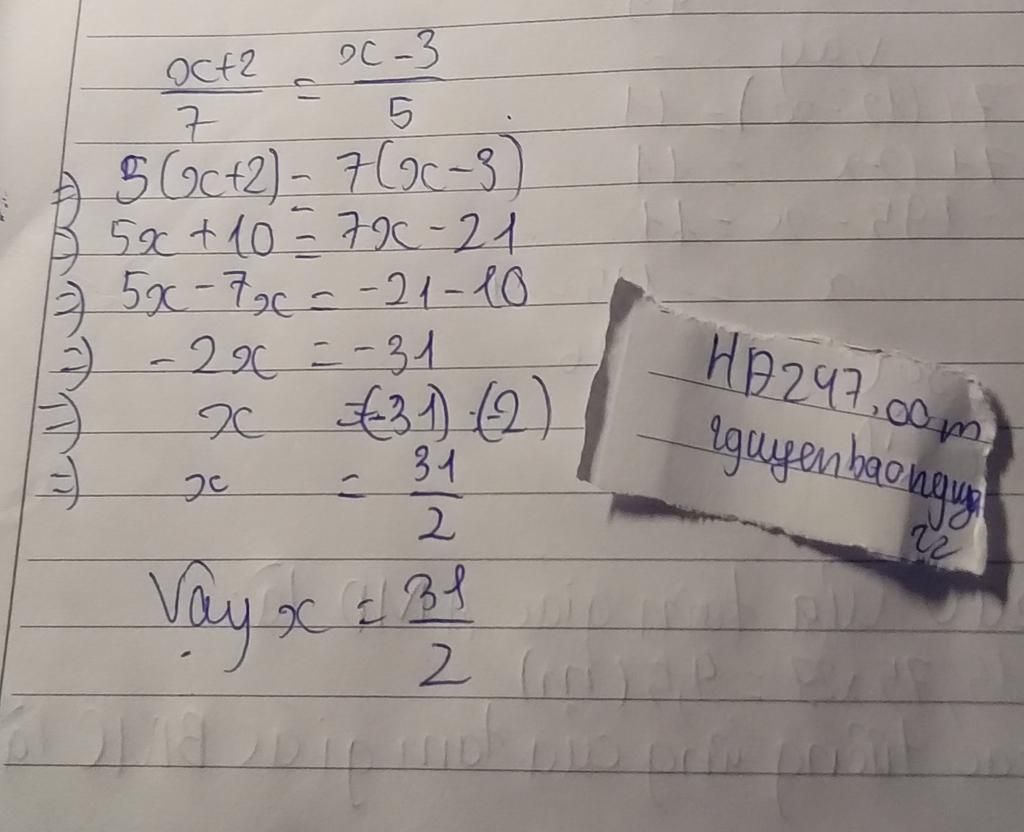 x+2/7 = x-3/5
=> 5(x+2) = 7(x-3)
=> 5x + 10 = 7x - 21
=> 5x - 7x = -21 - 10
=> -2x = -31
=> x = (-31) : (-2)
=> x = 31/2
Vậy x = 31/2
HĐ247.com
nguyenbaonguyn
22